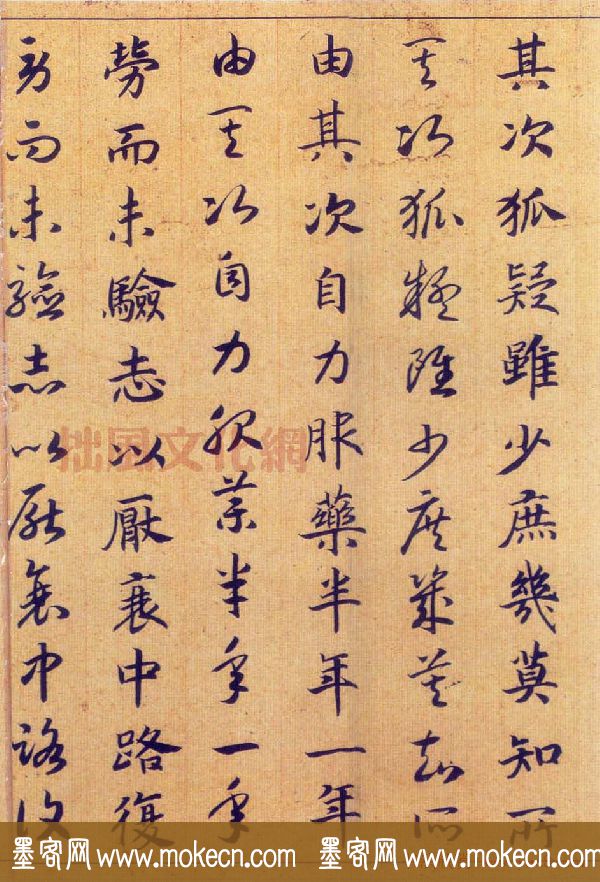 其次狐疑雖少庶幾莫知所
其次狐疑雖少庶幾莫知所
由其次自力服藥半年一年
由其次自力服藥半年一年
勞而未驗志以厭衰中路復
勞而未驗志以厭衰中路復
拙風文化網
墨客网 www.mokecn.com 墨客网 www.mokecn.com